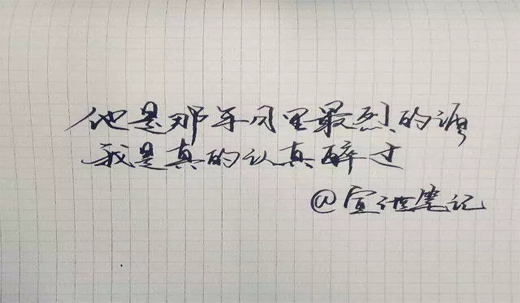 他是那年风里最烈的酒
我是真的认真醉过
@宣泄笔记